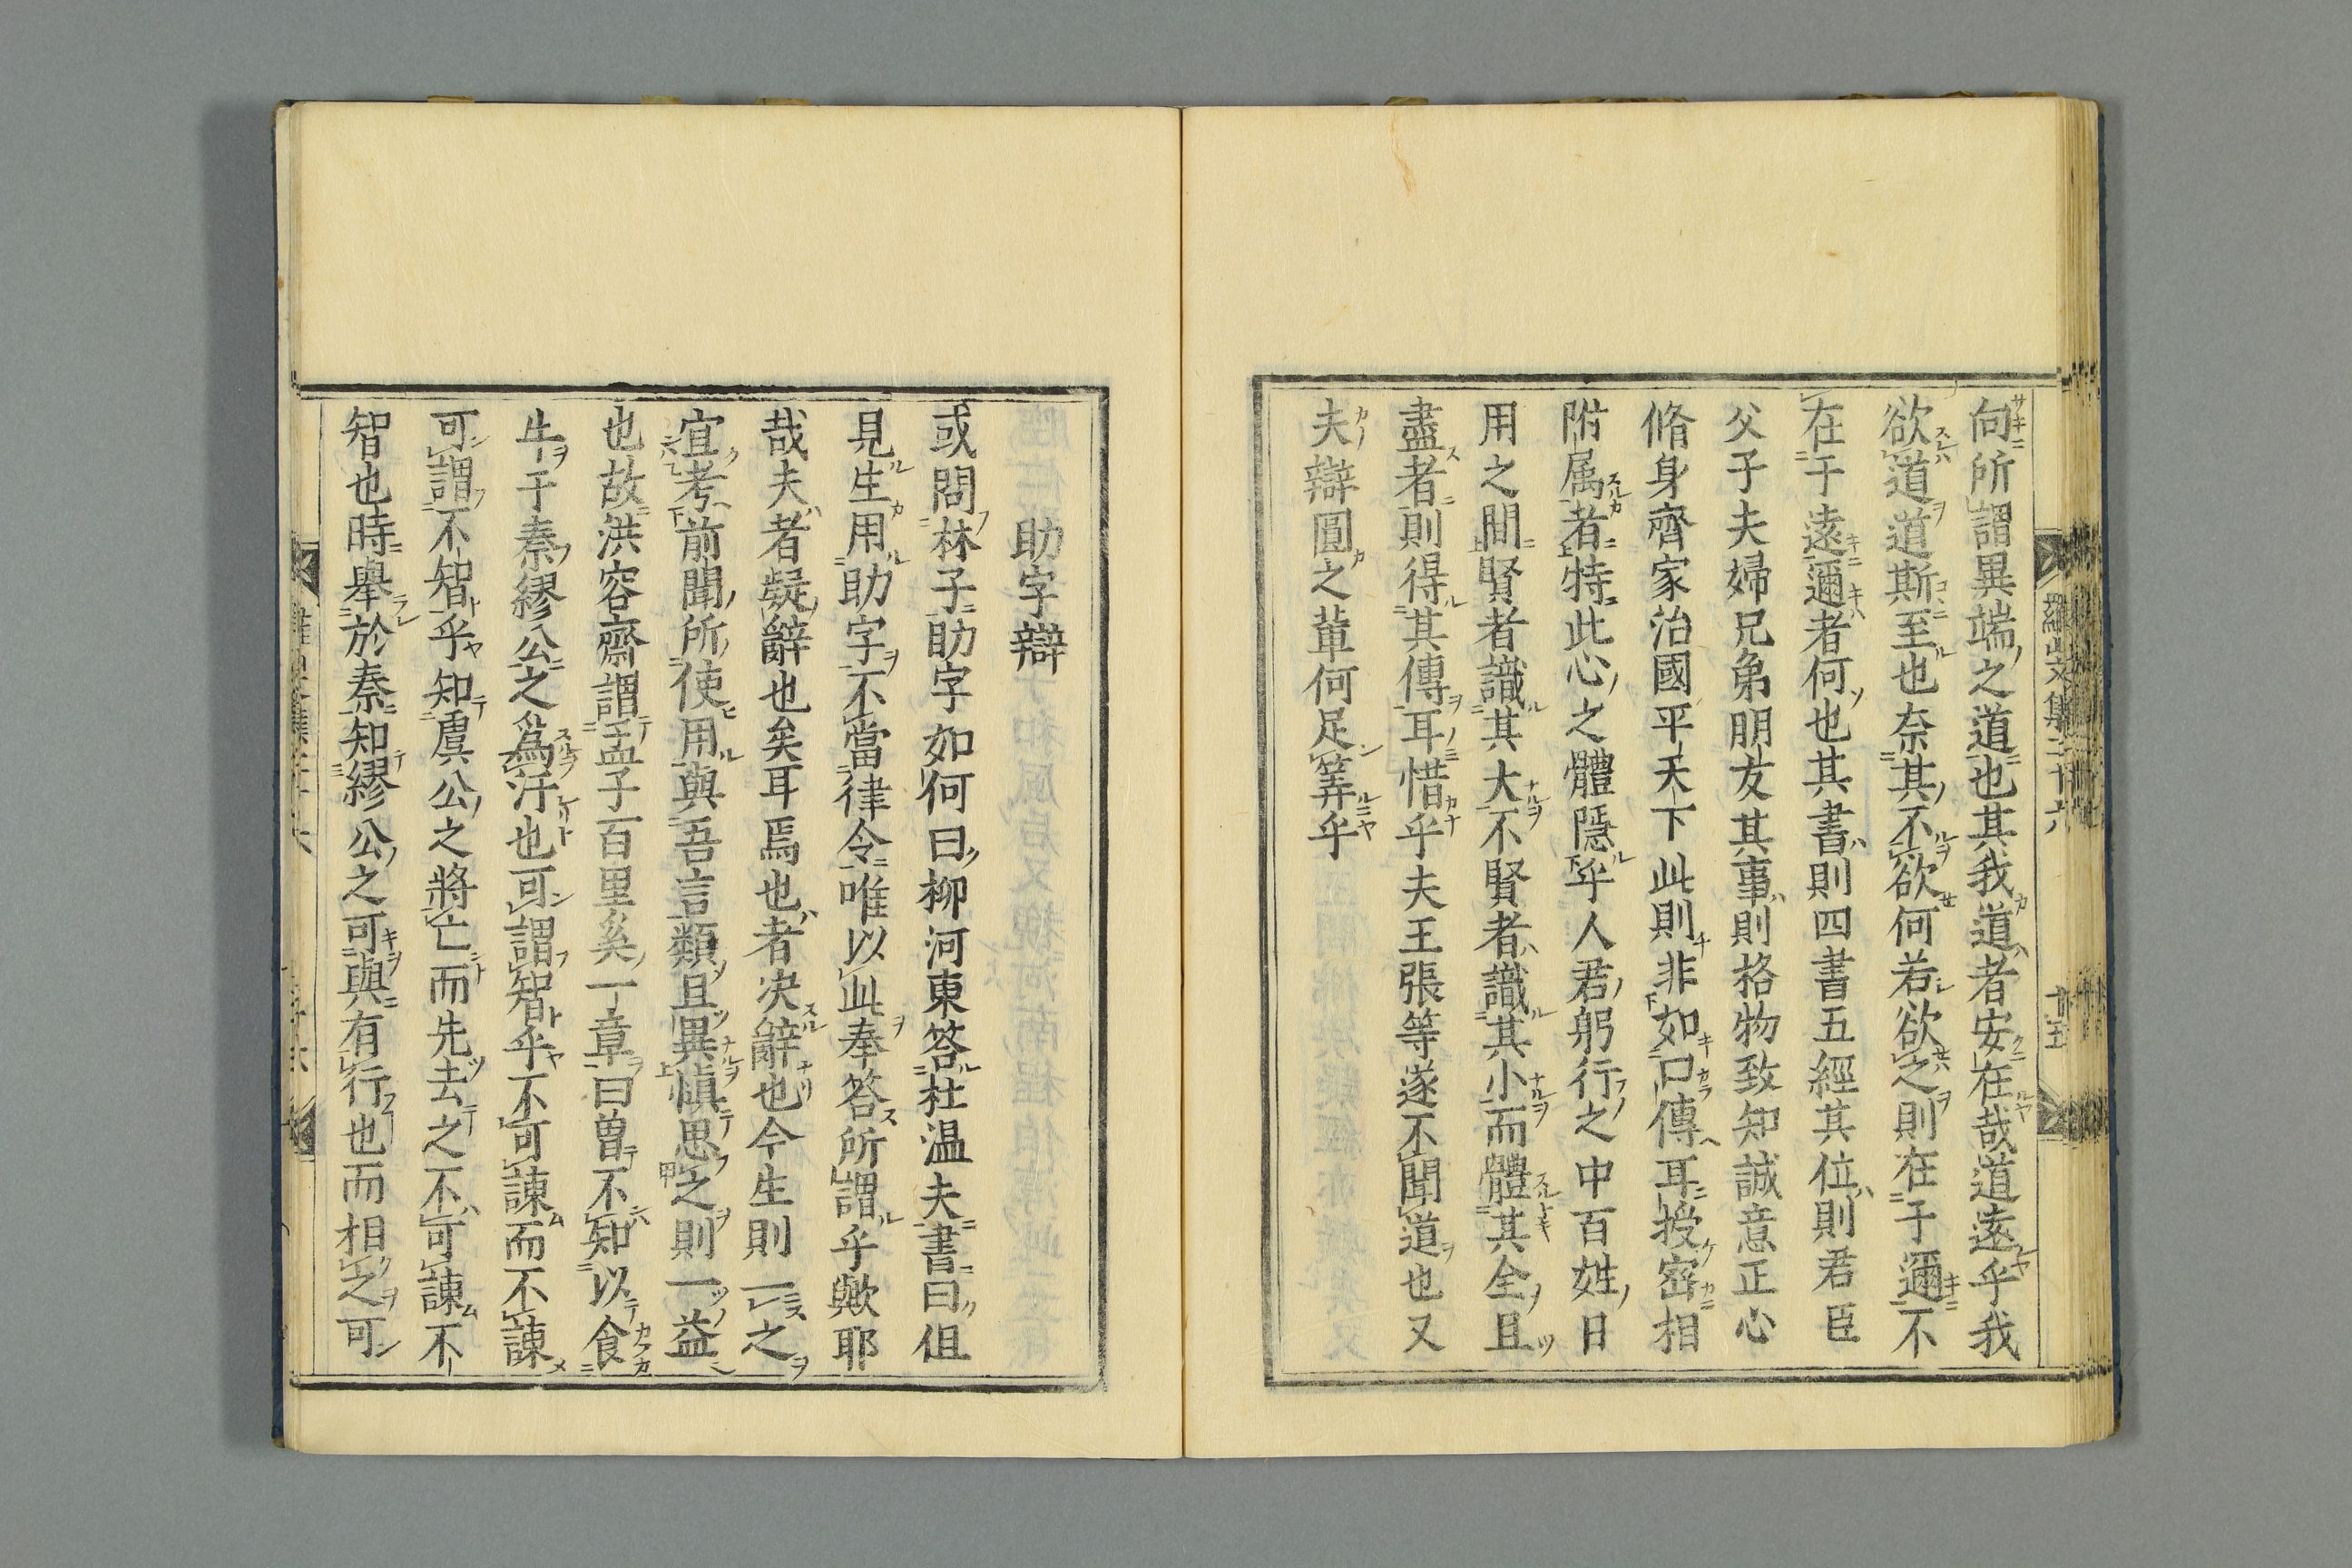 向所謂異端之道也其我道者安在哉道遠乎我
欲道道斯至也奈其不欲何若欲之則在于邇不
在于遠邇者何也其書則四書五經其位則君臣
父子夫婦兄弟朋友其事則格物致知誠意正心
脩身齊家治國平天下此則非如口傳耳授密相
附属者特此心之體隱乎人君躬行之中百姓日
用之間賢者識其大不賢者識其小而體其全且
盡者則得其傳耳惜乎夫王張等遂不聞道也又
夫辯圓之輩何足筭乎
羅山文集二十六
廿五
助字辯
或問林子助字如何曰柳河東答杜温夫書曰但
見生用助字不當律令唯以此奉答所謂乎歟耶
哉夫者疑辭也矣耳焉也者决辭也今生則一之
宜考前聞所使用與吾言類且異愼思之則一益
也故洪容齋謂孟子百里奚一章曰曽不知以食
牛于秦繆公之爲汗也可謂智乎不可諫而不諫
可謂不智乎知虞公之將亡而先去之不可諫不
智也時舉於秦知繆公之可與有行也而相之可